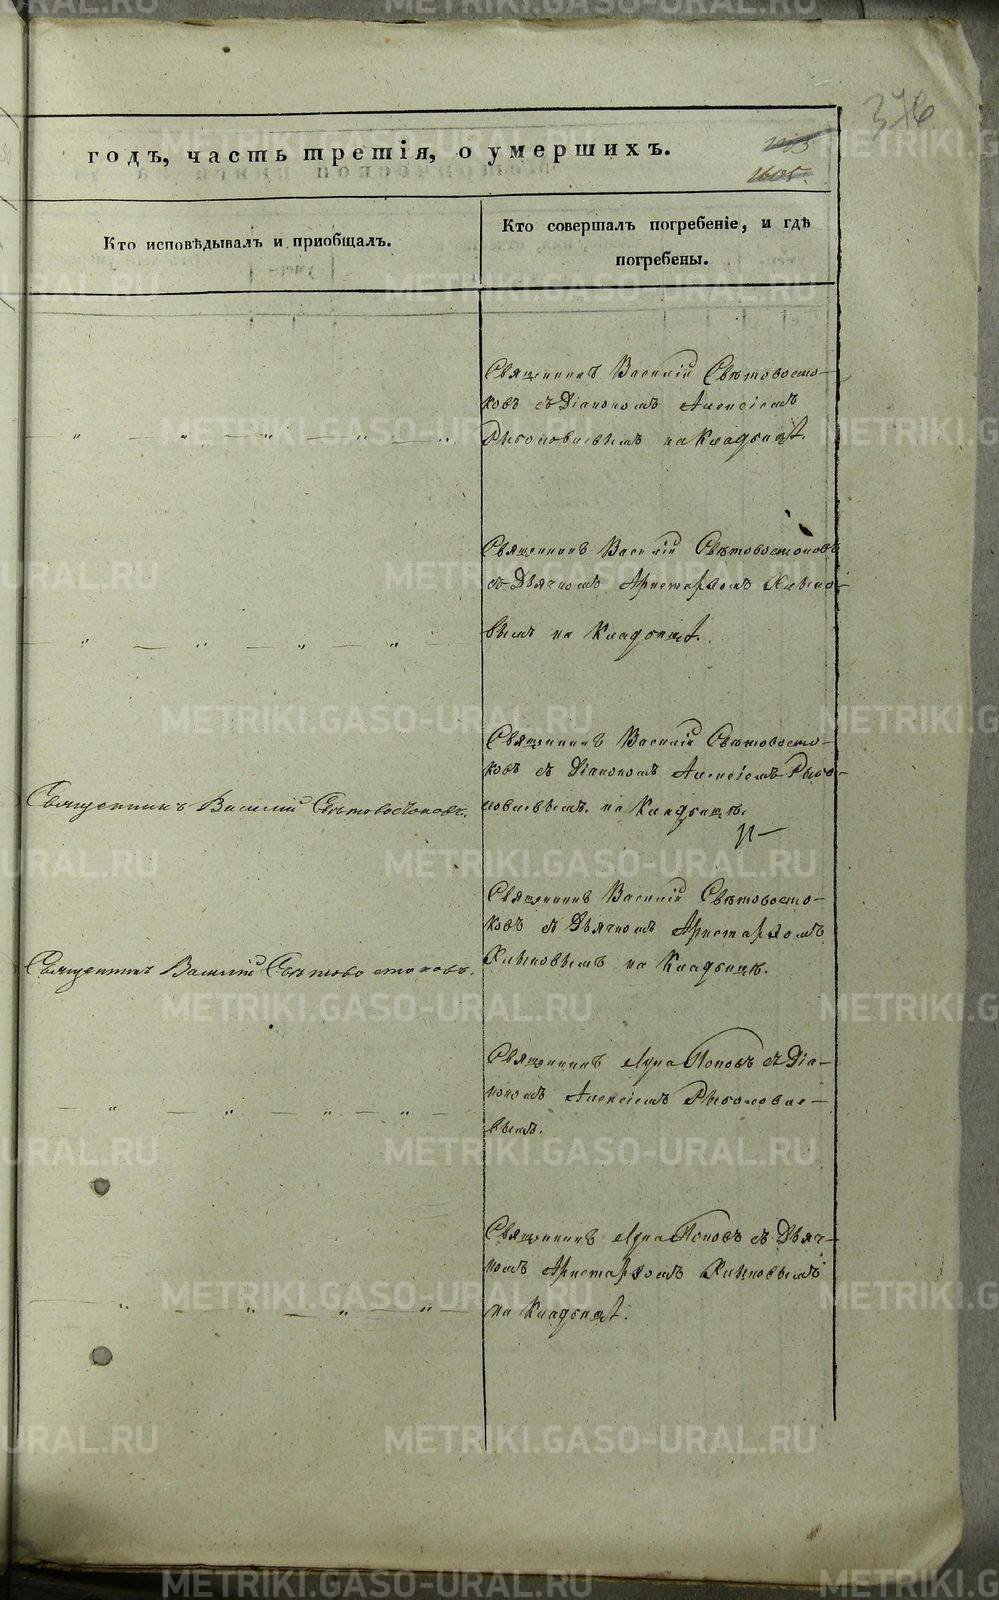 376
годъ, часть третія, о умершихъ.
1605.
Кто исповѣдывалъ и пріобщалъ.
Кто совершалъ погребеніе, и гдѣ
погребены.
Священникъ Василій Свѣтовосто-
ковъ съ Діакономъ Алексіемъ
на Кладбищѣ.
Священникъ Василій Свѣтовостоковъ
съ Дьячкомъ Аристархомъ Хлыно-
вымъ на Кладбищѣ.
Священникъ Василій Свѣтовосто-
ковъ съ Діакономъ Алексіемъ
на Кладбищѣ.
Священникъ Василій Свѣтовостоковъ.
Священникъ Василій Свѣтовосто-
ковъ съ Дьячкомъ Аристархомъ
Хлыновымъ на Кладбищѣ.
Священникъ Василій Свѣтовостоковъ.
Священникъ Поповъ съ Діа-
кономъ Алексіемъ
Священникъ Поповъ съ Дьяч-
комъ Аристархомъ Хлыновымъ
на Кладбищѣ.
METRIKI.GASO-URAL.RU